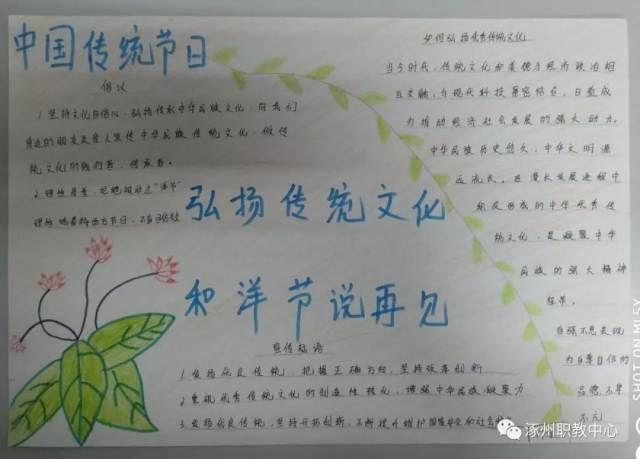 中国传统节日
倡议
1.坚持文化自信心,弘扬传承中华民族文化,向我们
身边的朋友亲人宣传中华民族传统文化,做传
统文化的践行者、传承者。
2.理性思考,拒绝
理性地看待西方节日,不盲目
弘扬传统文化
和洋节说再见
宣传标语
1.发扬优良传统,把握正确方向,坚持改革创新
2.重视优秀传统文化的创造性转化,增强中华民族凝聚力
3.发扬优良传统,坚持开拓创新,不断提升维护国家安全和社会
如何弘扬优秀传统文化
当今时代,传统文化和美德与经济政治相
互交融,与现代科技紧密结合,日益成
为推动经济社会发展的强大动力。
中华民族历史悠久,中华文明源
远流长。在漫长发展进程中
积淀形成的中华优秀传
统文化,是凝聚中华
民族的强大精神
纽带。
自强不息表现
为自尊自信的
品德,不卑
不亢
涿州职教中心
SHOT ON